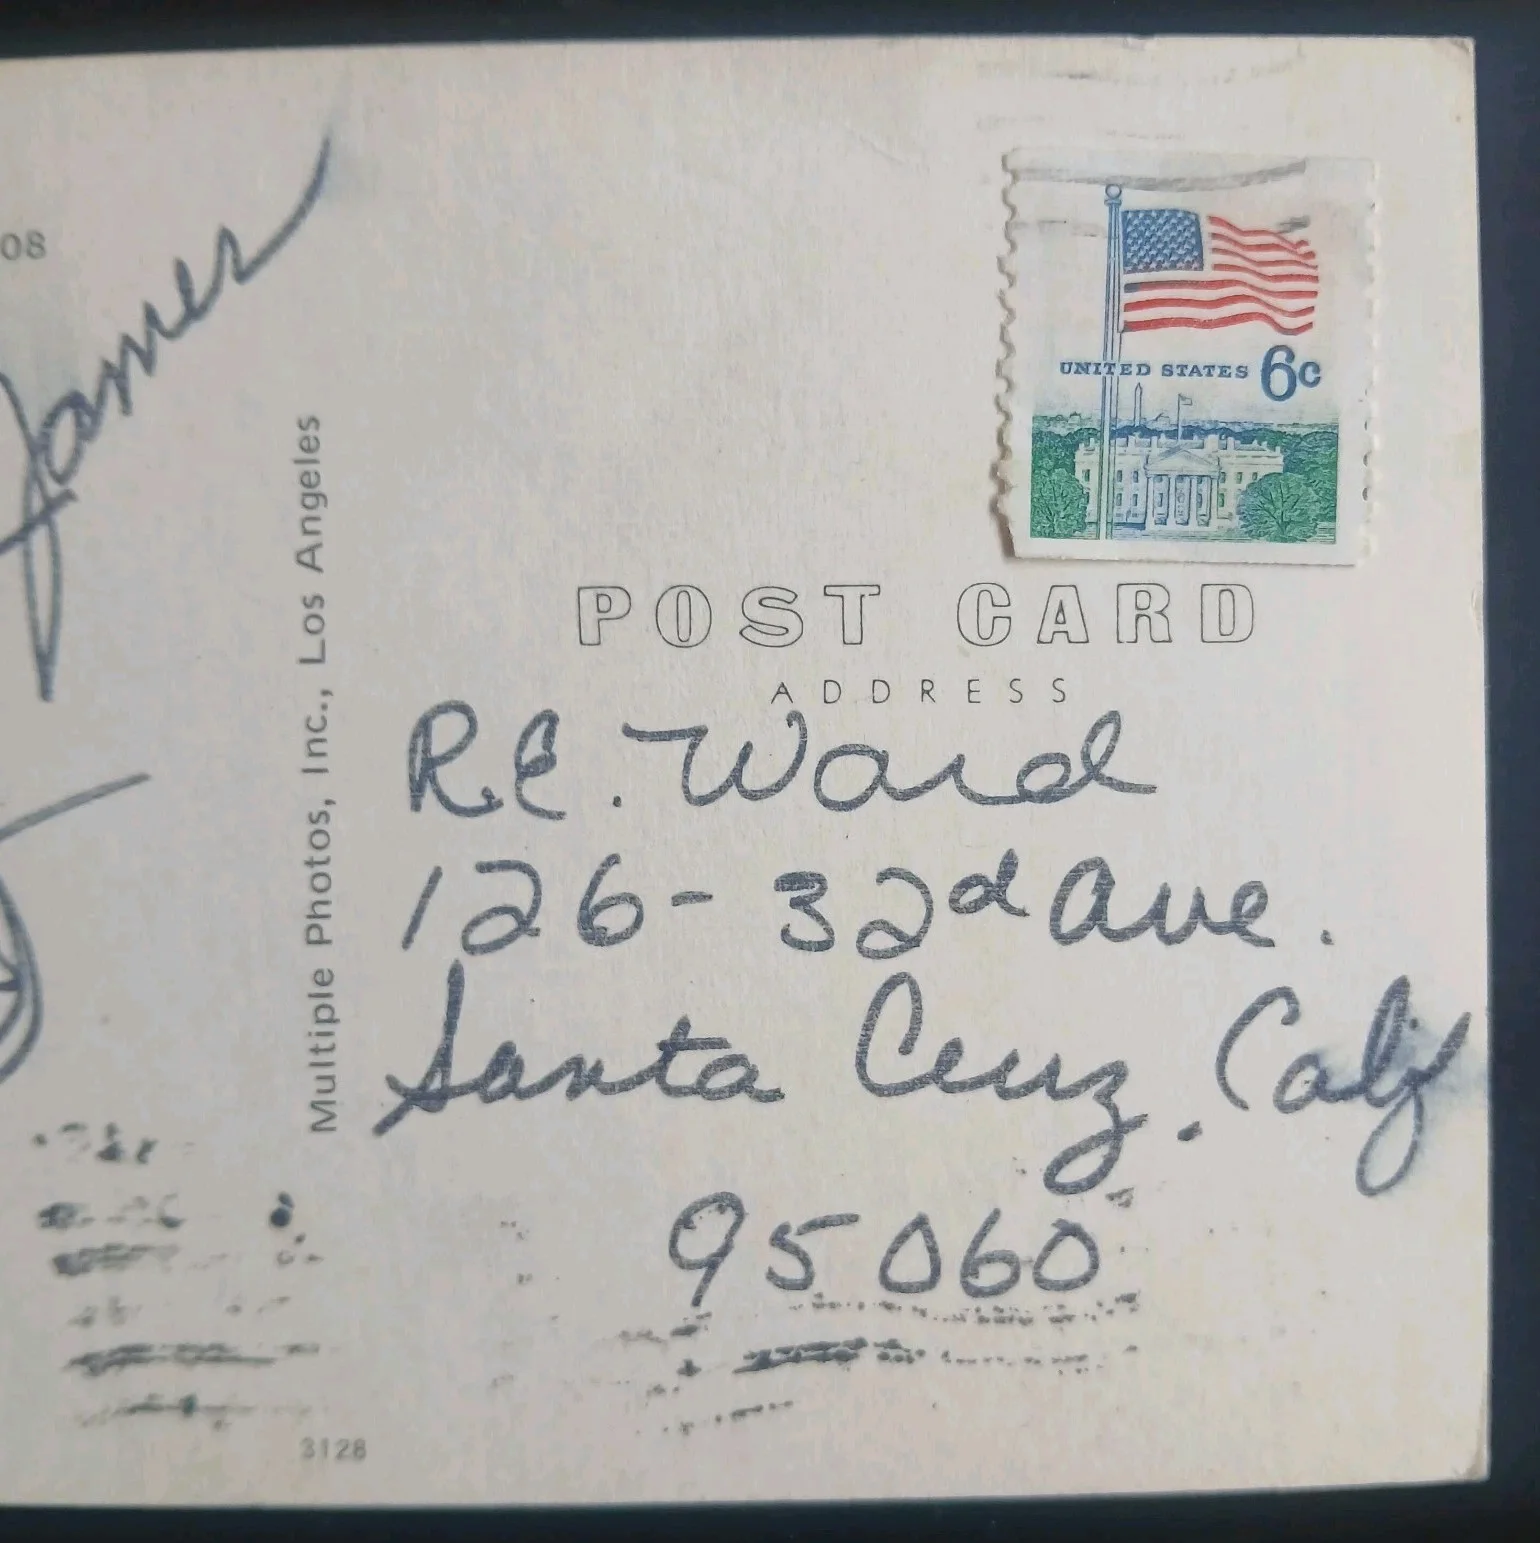 08
James
Multiple Photos, Inc., Los Angeles
UNITED STATES 6c
POST CARD
ADDRESS
R.E. Ward
126-32d Ave.
Santa Cruz. Calif
95060
3128